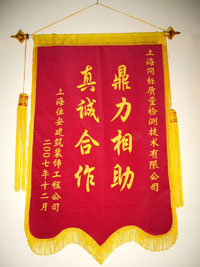 上海同标质量检测技术有限公司
鼎力相助
真诚合作
上海住安建筑装饰工程公司
二〇〇七年十二月